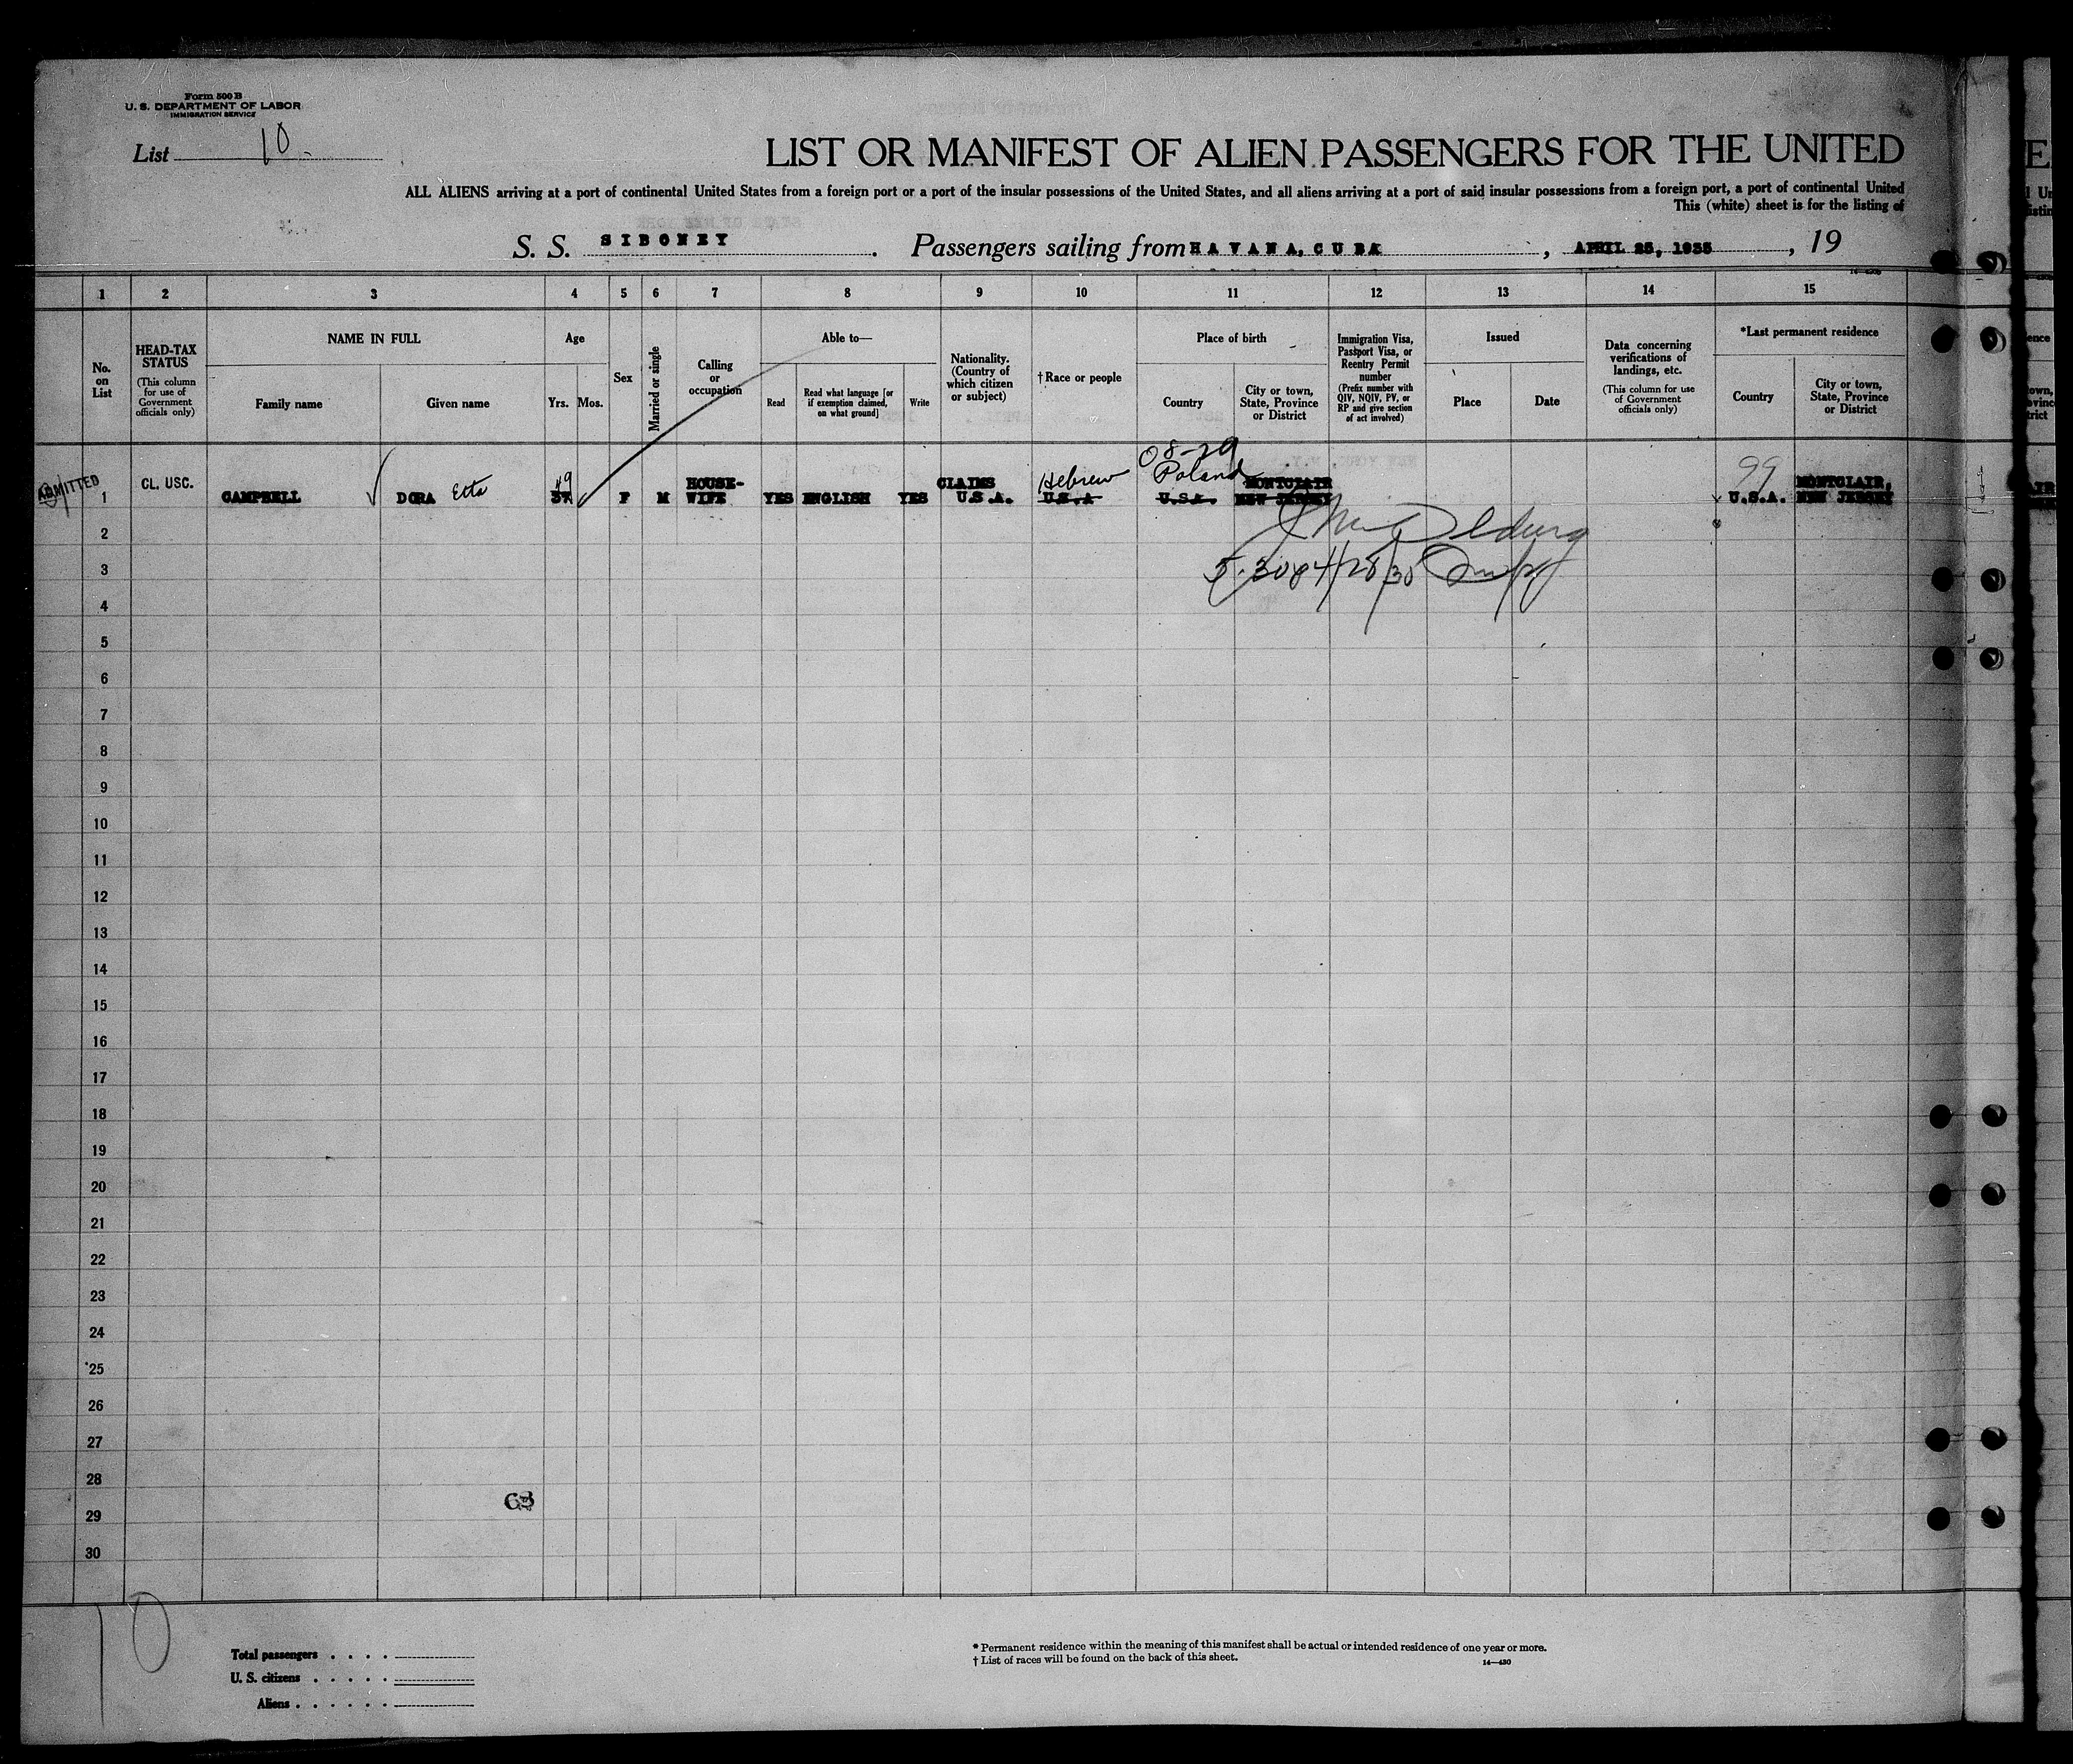 Form 500 B
U. S. DEPARTMENT OF LABOR
IMMIGRATION SERVICE
List 10.
LIST OR MANIFEST OF ALIEN PASSENGERS FOR THE UNITED
ALL ALIENS arriving at a port of continental United States from a foreign port or a port of the insular possessions of the United States, and all aliens arriving at a port of said insular possessions from a foreign port, a port of continental United
This (white) sheet is for the listing of
S. S. SIBONEY. Passengers sailing from HAVANA, CUBA, APRIL 25, 1935, 19
1 2 3 4 5 6 7 8 9 10 11 12 13 14 15
No. on List
HEAD-TAX STATUS (This column for use of Government officials only)
NAME IN FULL
Family name
Given name
Age
Yrs. Mos.
Sex
Married or single
Calling or occupation
Able to—
Read
Read what language [or if exemption claimed, on what ground]
Write
Nationality. (Country of which citizen or subject)
† Race or people
Place of birth
Country
City or town, State, Province or District
Immigration Visa, Passport Visa, or Reentry Permit number (Prefix number with QIV, NQIV, PV, or RP and give section of act involved)
Issued
Place
Date
Data concerning verifications of landings, etc. (This column for use of Government officials only)
*Last permanent residence
Country
City or town, State, Province or District
08-29
ADMITTED CL. USC. 49 HOUSE- CLAIMS Hebrew Poland MONTCLAIR 99 MONTCLAIR,
1 CAMPBELL DORA Etta 37 F M WIFE YES ENGLISH YES U.S.A. U.S.A U.S.A. NEW JERSEY U.S.A. NEW JERSEY
2
3
4
5
6
7
8
9
10
11
12
13
14
15
16
17
18
19
20
21
22
23
24
25
26
27
28
63
29
30
10
Total passengers . . . .
U. S. citizens . . . . .
Aliens . . . . . .
* Permanent residence within the meaning of this manifest shall be actual or intended residence of one year or more.
† List of races will be found on the back of this sheet.
14—430